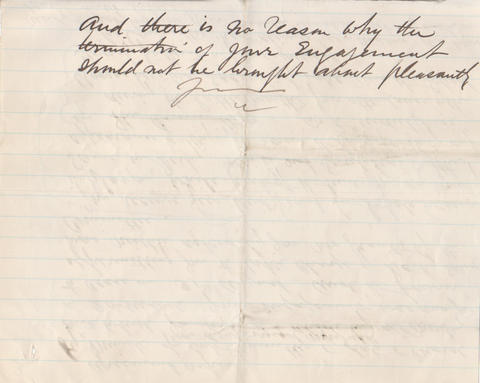 And there is no reason why the
termination of your Engagement
should not be brought about pleasantly